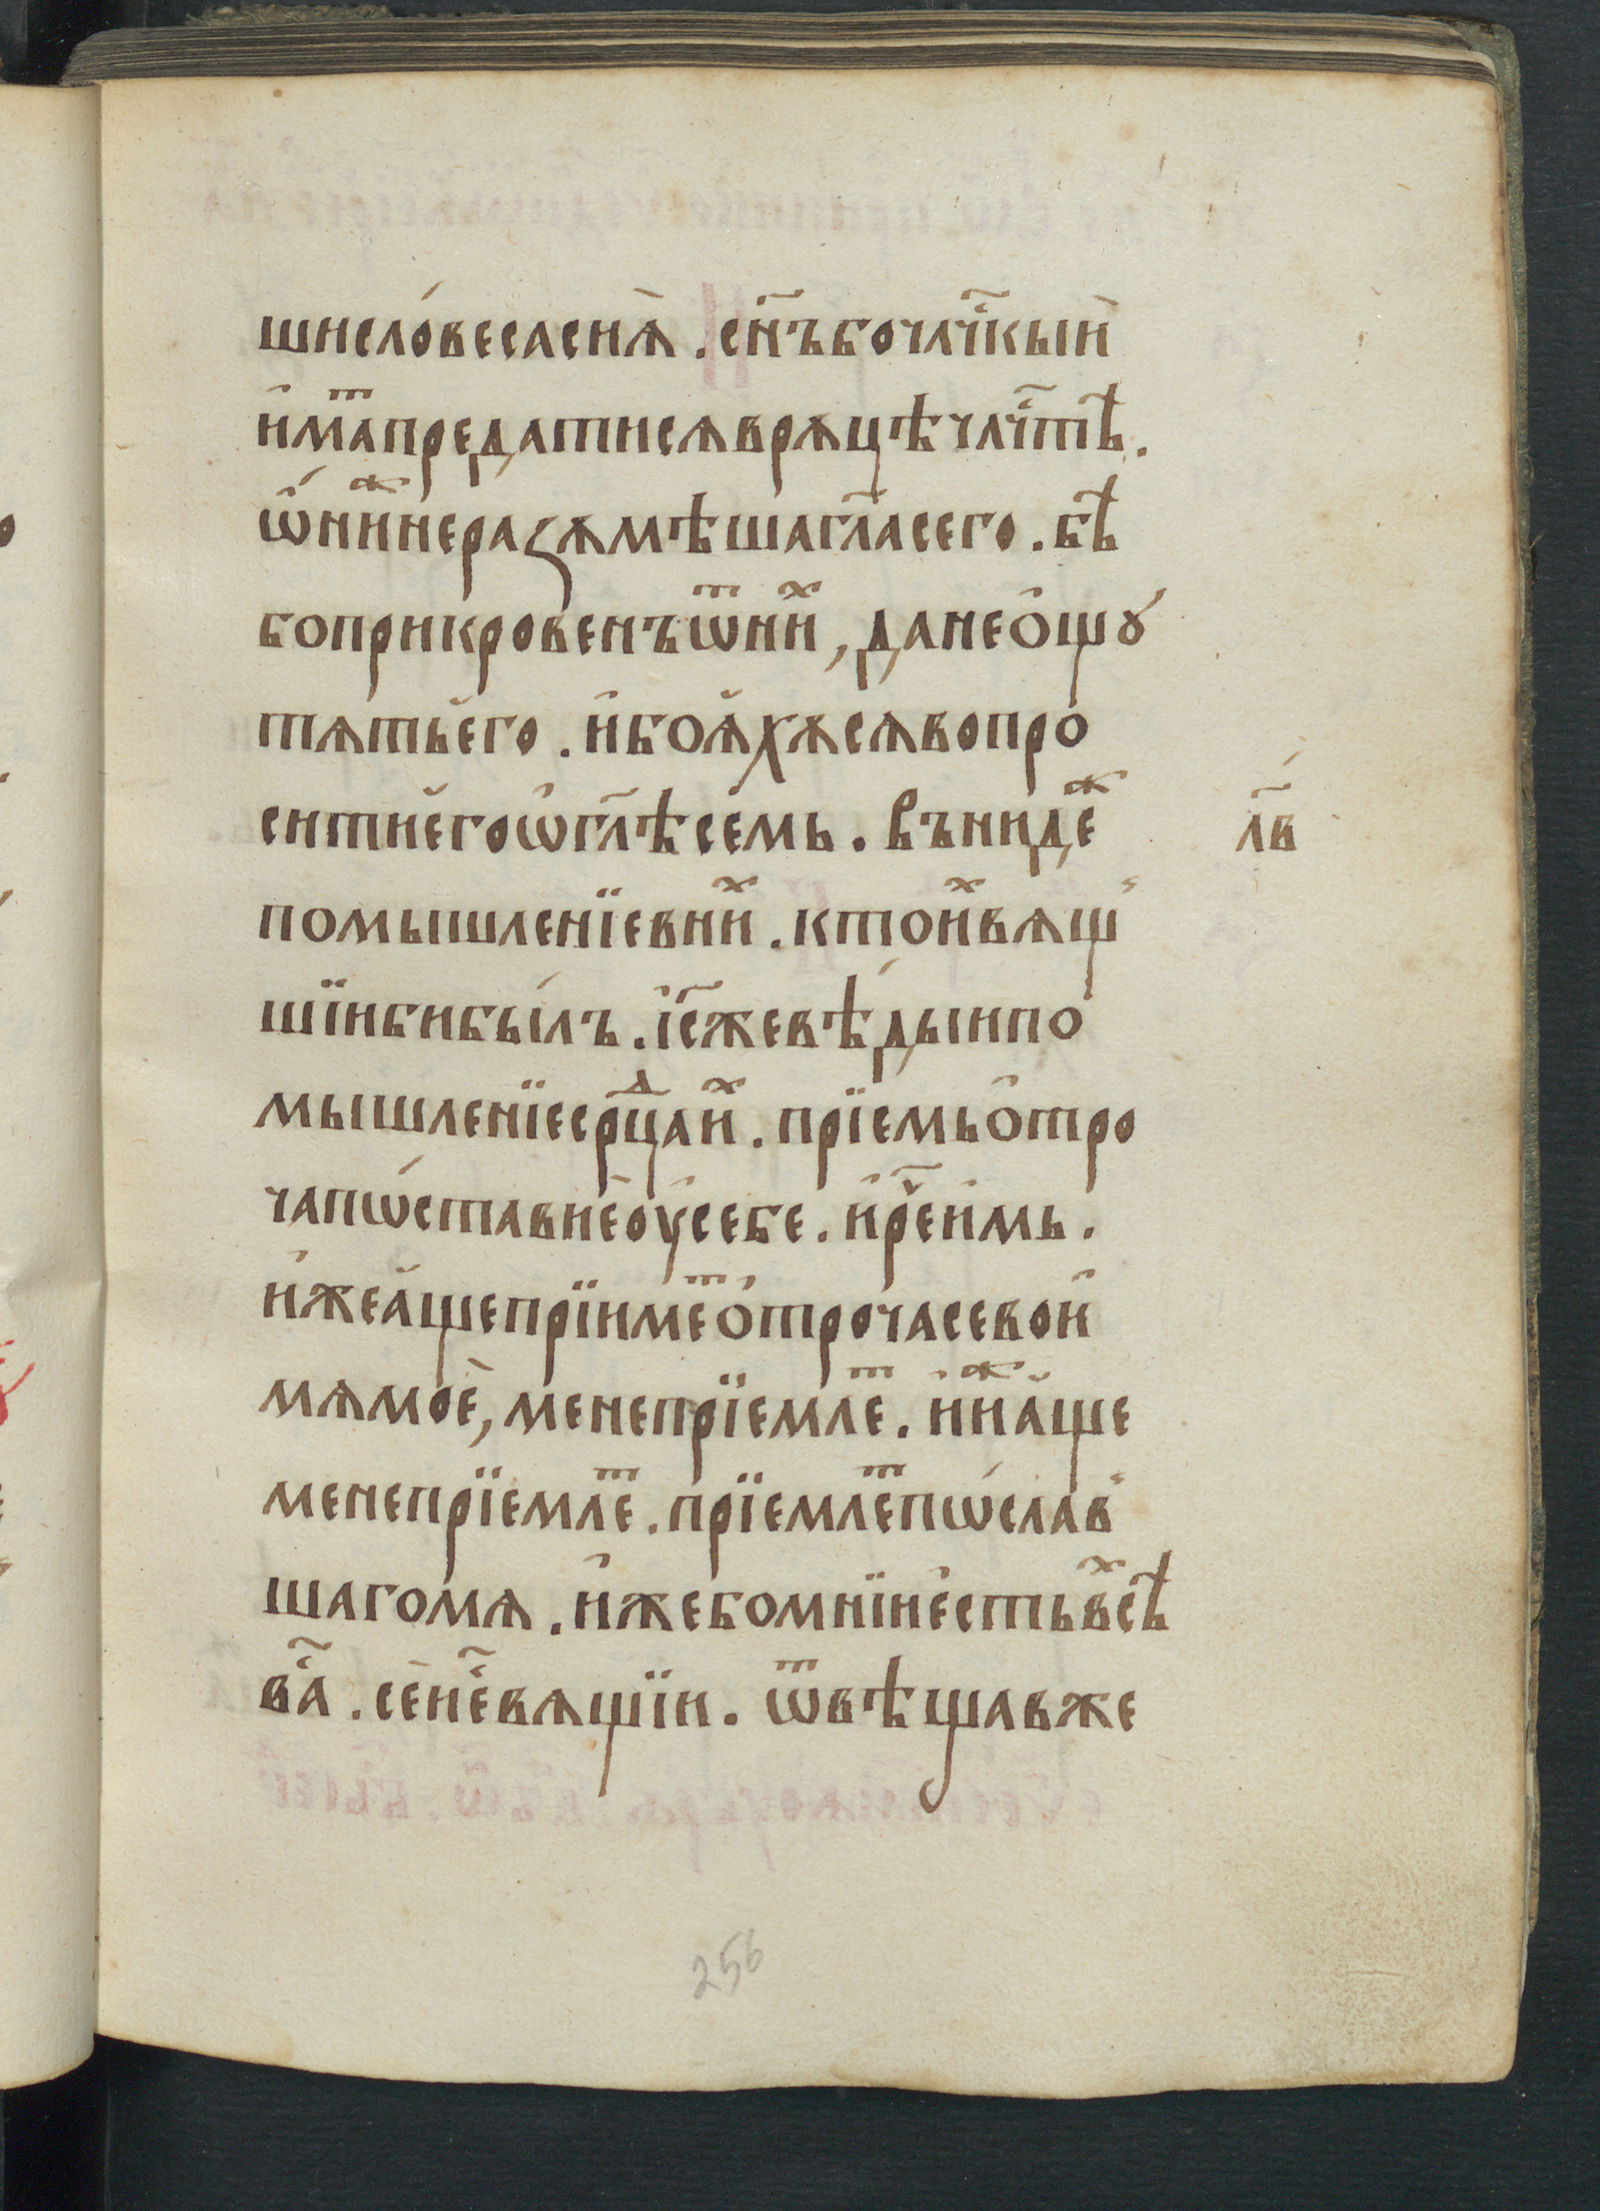 шисло́весасиѧ̀ . сн҃ъбочл҃чⷭ҇кыи҆
и҆ма́ⷮпредатисѧврѫцѣчл҃чⷭ҇тѣ .
ѡ҆ни́ⷤнеразѫмѣшагл҃асего . бѣ̀
боприкровенъѿниⷯ , данео҆щꙋ́
тѫтье҆го . и҆боꙗ҆хѫсѧвопро
ситие҆гоѡ҆гл҃ѣсе́мь . Въниде́ⷤ
помышленїевниⷯ . ктои҆ⷯвѧщ
шїибибы́лъ . і҆с҃жевѣ́дыипо
мышленїесрⷣцаи҆ⷯ . прїемьо҆тро
чапѡ́ставие҆ѹ҆себе . и҆реⷱ҇и҆мь .
и҆жеа҆щепрїиме́ⷮо҆трочасевои҆
мѧмое҆ , менеприїемлеⷮ . и҆иⷤа҆ще
менепрїемлеⷮ . прїемлеⷮпѡ́слав
шагомѧ . и҆жебомнїие҆стьвсѣⷯ
ваⷭ҇ . се҆и҆еⷭ҇вѧщїи . ѿвѣщавже
л҃в
256